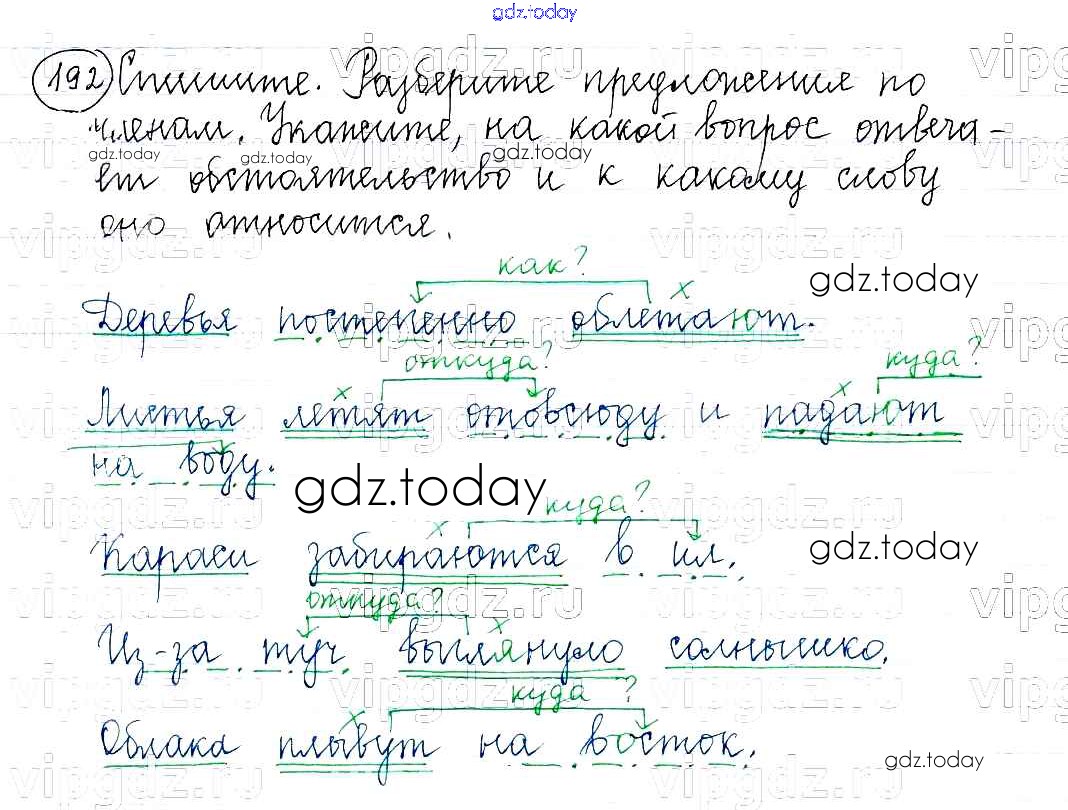 gdz.today
192 Спишите. Разберите предложения по
членам. Укажите, на какой вопрос отвеча-
gdz.today gdz.today gdz.today
ет обстоятельство и к какому слову
оно относится.
как?
gdz.today
Деревья постепенно облетают.
откуда? куда?
Листья летят отовсюду и падают
на воду.
gdz.today
куда?
Караси забираются в ил.
gdz.today
откуда?
Из-за туч выглянуло солнышко.
куда ?
Облака плывут на восток.
gdz.today